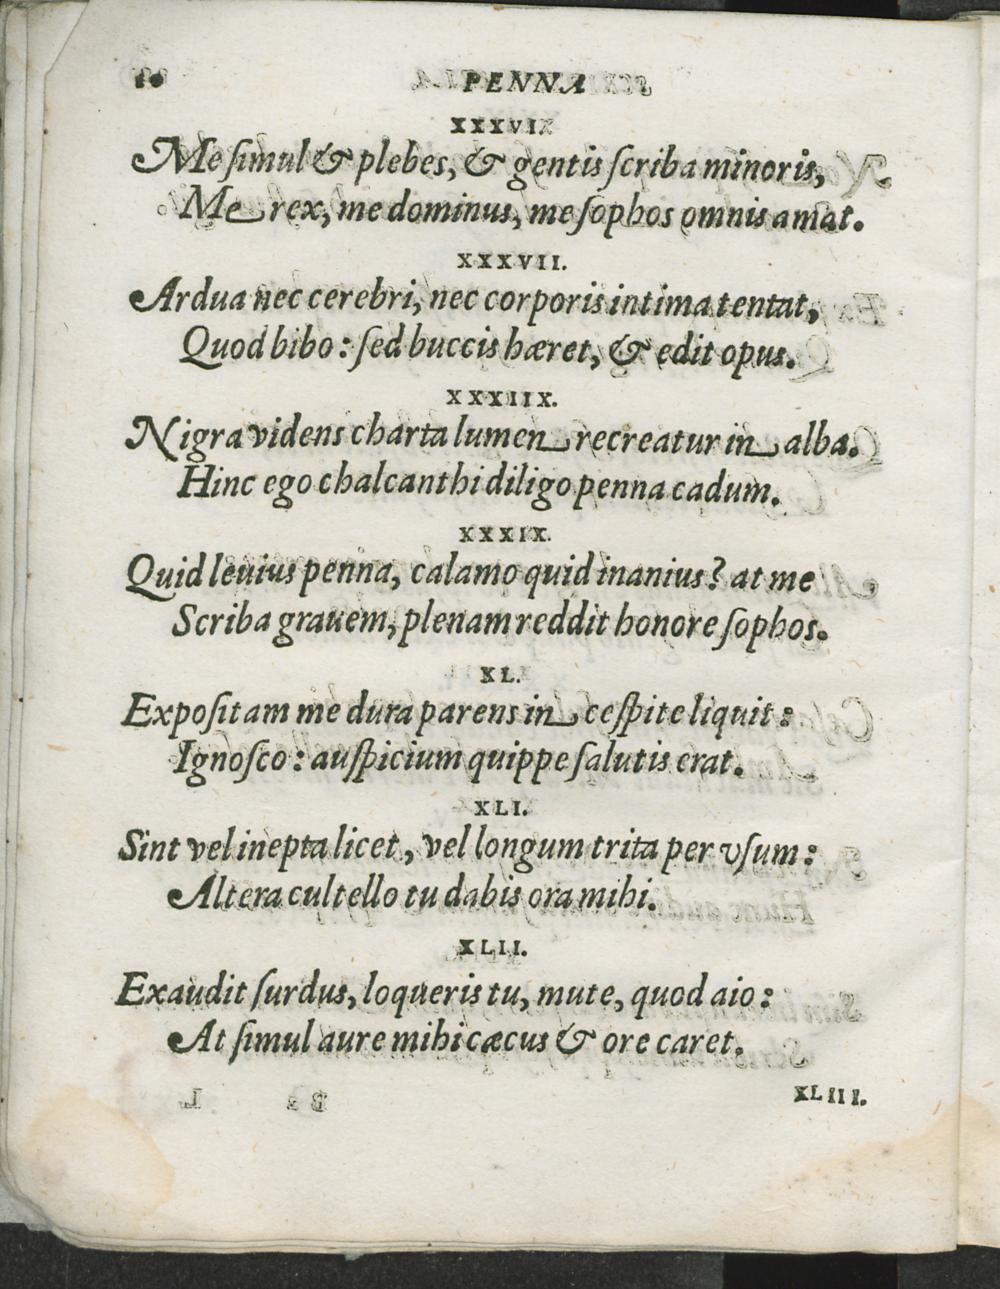 PENNA
XXXVI.
Me ſimul & plebes, & gentis ſcriba minoris,
Me rex, me dominus, me ſophos omnis amat.
XXXVII.
Ardua nec cerebri, nec corporis intima tentat,
Quod bibo: ſed buccis hæret, & edit opus.
XXXIIX.
Nigra videns charta lumen recreatur in alba.
Hinc ego chalcanthi diligo penna cadum.
XXXIX.
Quid leuius penna, calamo quid inanius? at me
Scriba grauem, plenam reddit honore ſophos.
XL.
Expoſitam me dura parens in ceſpite liquit:
Ignoſco: auſpicium quippe ſalutis erat.
XLI.
Sint vel inepta licet, vel longum trita per vſum:
Altera cultello tu dabis ora mihi.
XLII.
Exaudit ſurdus, loqueris tu, mute, quod aio:
At ſimul aure mihi cæcus & ore caret.
XLIII.